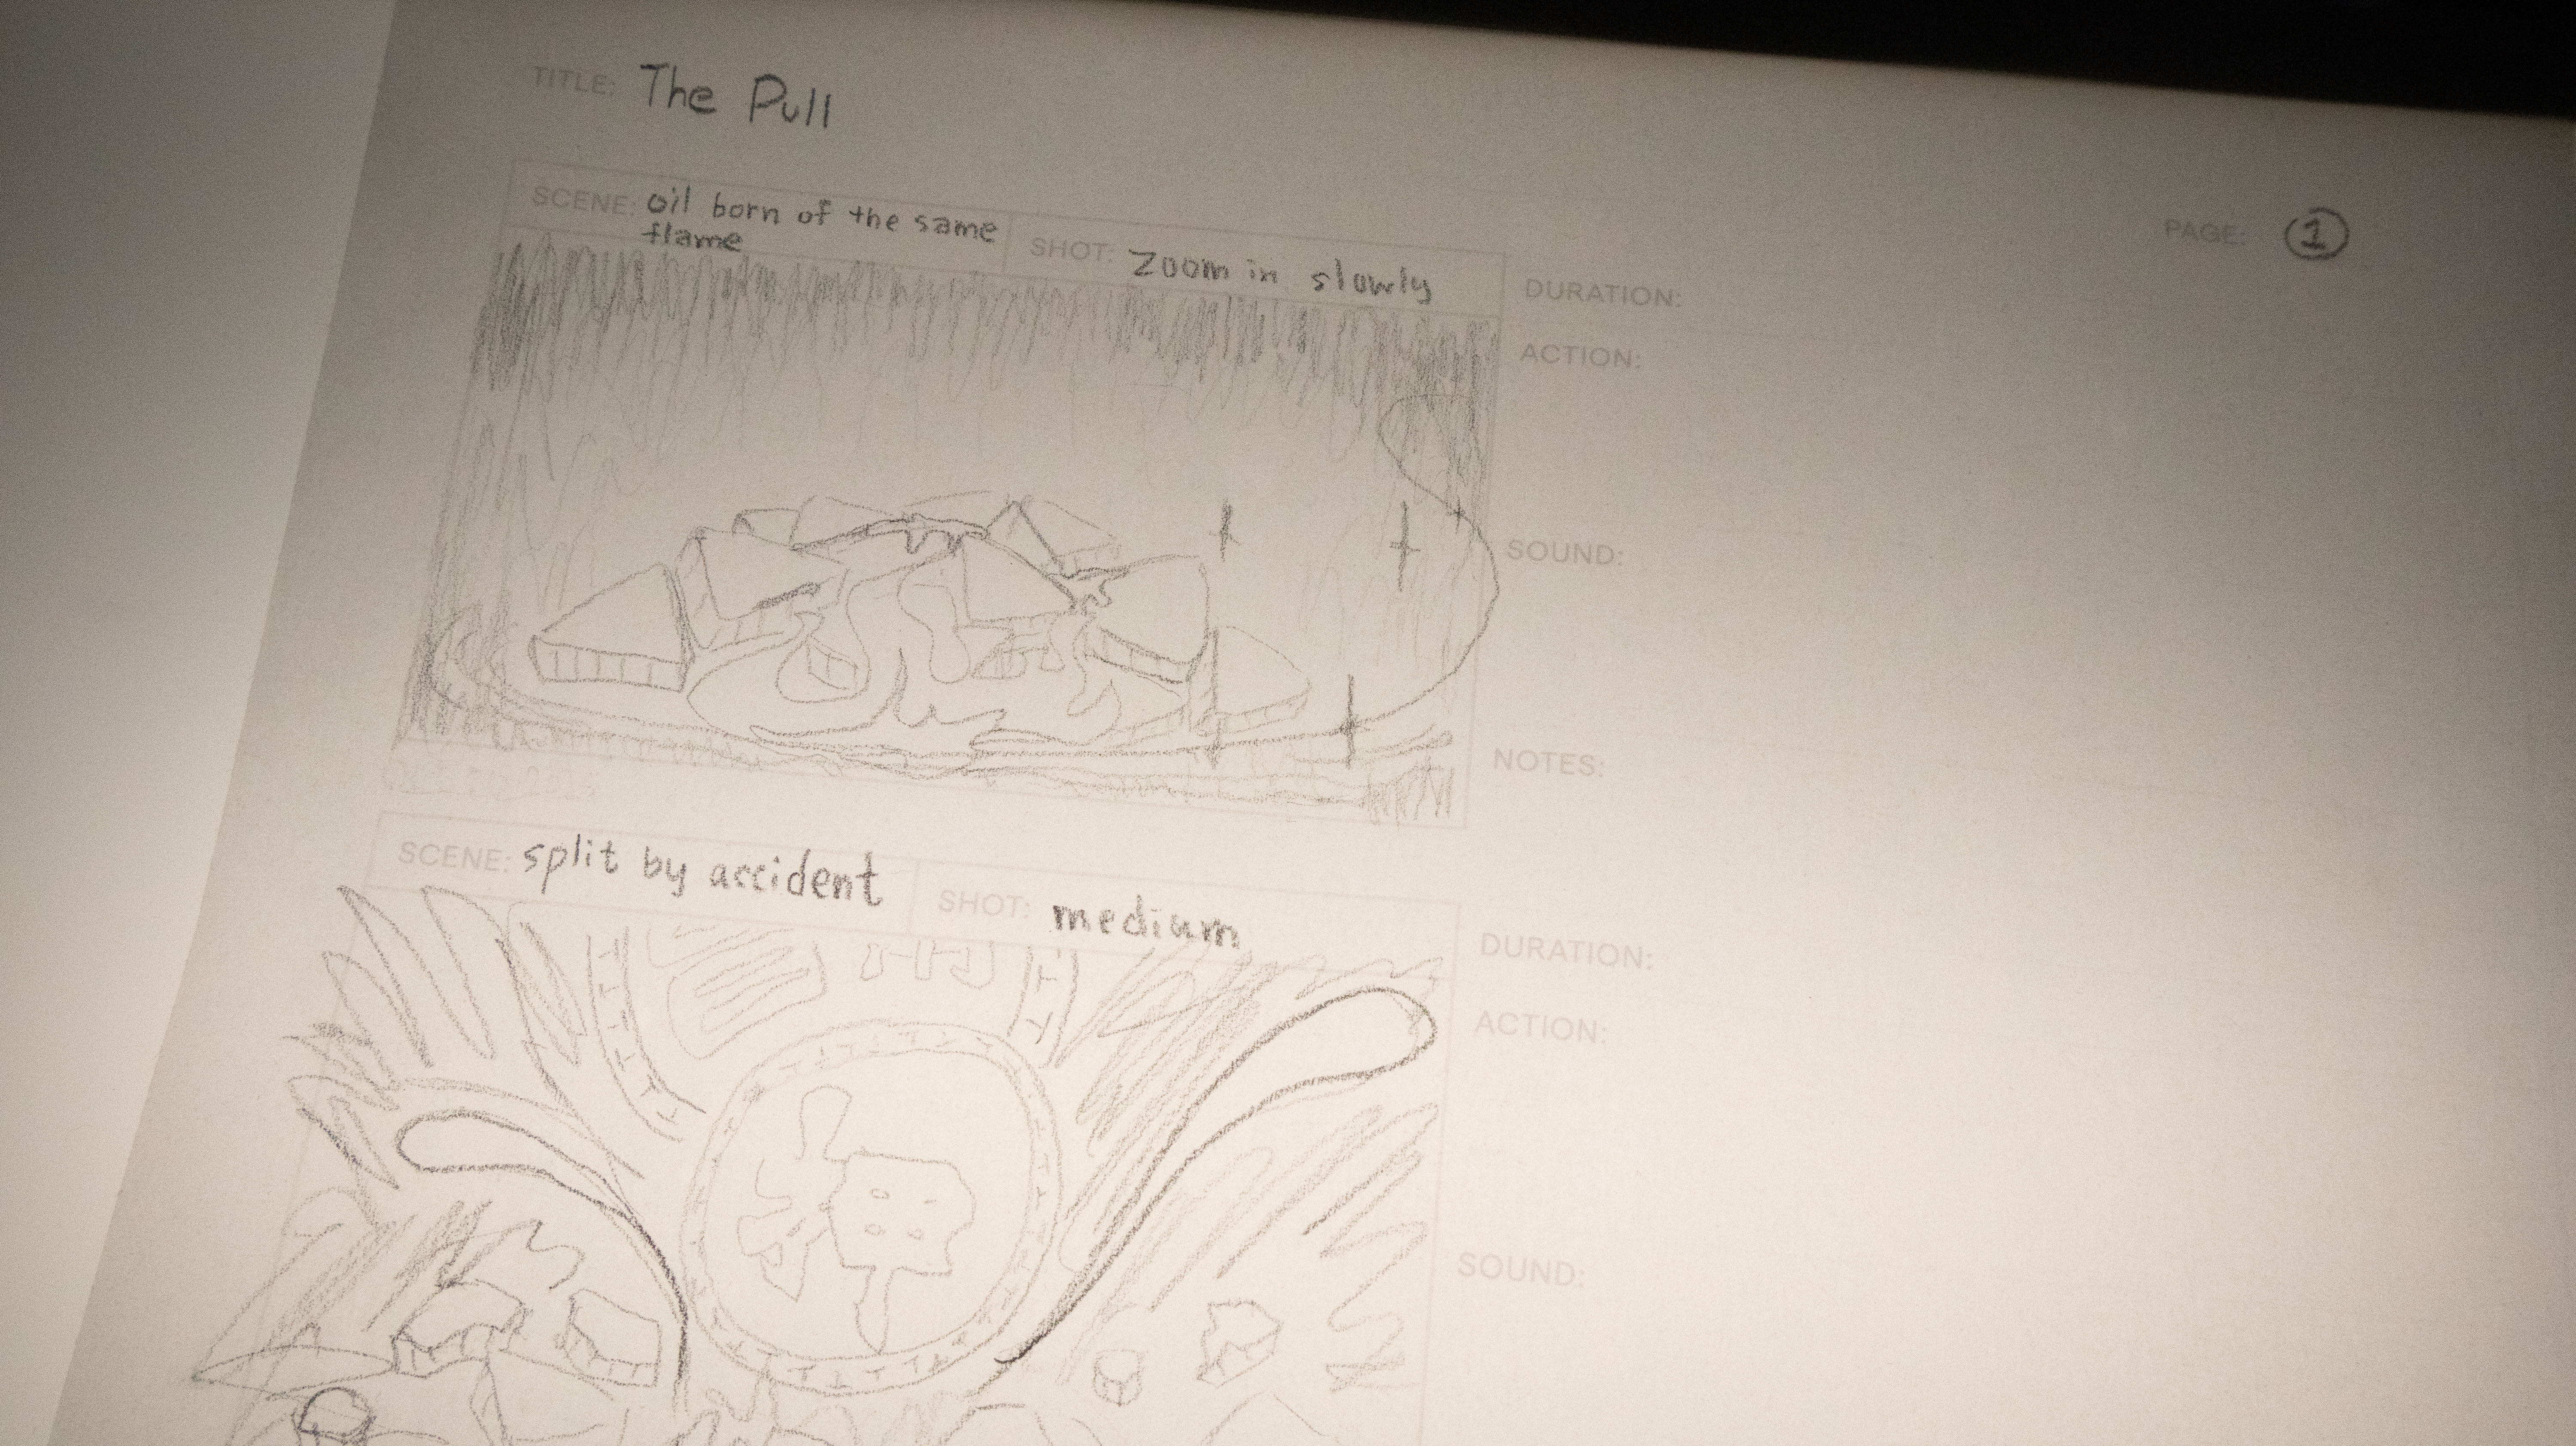 TITLE: The Pull
PAGE: 1
SCENE: oil born of the same
flame
SHOT: Zoom in slowly
DURATION:
ACTION:
SOUND:
NOTES:
SCENE: split by accident
SHOT: medium
DURATION:
ACTION:
SOUND: